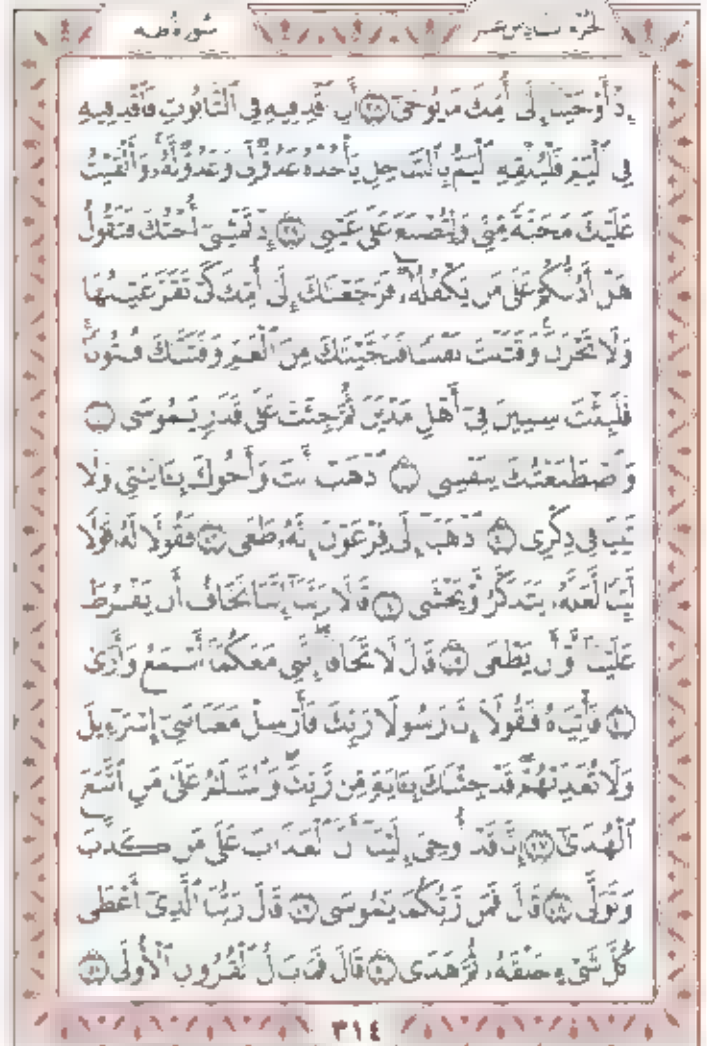 سورة طه
الجزء السادس عشر
إِذْ أَوْحَيْنَآ إِلَىٰٓ أُمِّكَ مَا يُوحَىٰٓ ﴿٣٨﴾ أَنِ ٱقْذِفِيهِ فِى ٱلتَّابُوتِ فَٱقْذِفِيهِ
فِى ٱلْيَمِّ فَلْيُلْقِهِ ٱلْيَمُّ بِٱلسَّاحِلِ يَأْخُذْهُ عَدُوٌّ لِّى وَعَدُوٌّ لَّهُۥ ۚ وَأَلْقَيْتُ
عَلَيْكَ مَحَبَّةً مِّنِّى وَلِتُصْنَعَ عَلَىٰ عَيْنِىٓ ﴿٣٩﴾ إِذْ تَمْشِىٓ أُخْتُكَ فَتَقُولُ
هَلْ أَدُلُّكُمْ عَلَىٰ مَن يَكْفُلُهُۥ ۖ فَرَجَعْنَـٰكَ إِلَىٰٓ أُمِّكَ كَىْ تَقَرَّ عَيْنُهَا
وَلَا تَحْزَنَ ۚ وَقَتَلْتَ نَفْسًا فَنَجَّيْنَـٰكَ مِنَ ٱلْغَمِّ وَفَتَنَّـٰكَ فُتُونًا ۚ
فَلَبِثْتَ سِنِينَ فِىٓ أَهْلِ مَدْيَنَ ثُمَّ جِئْتَ عَلَىٰ قَدَرٍ يَـٰمُوسَىٰ ﴿٤٠﴾
وَٱصْطَنَعْتُكَ لِنَفْسِى ﴿٤١﴾ ٱذْهَبْ أَنتَ وَأَخُوكَ بِـَٔايَـٰتِى وَلَا
تَنِيَا فِى ذِكْرِى ﴿٤٢﴾ ٱذْهَبَآ إِلَىٰ فِرْعَوْنَ إِنَّهُۥ طَغَىٰ ﴿٤٣﴾ فَقُولَا لَهُۥ قَوْلًا
لَّيِّنًا لَّعَلَّهُۥ يَتَذَكَّرُ أَوْ يَخْشَىٰ ﴿٤٤﴾ قَالَا رَبَّنَآ إِنَّنَا نَخَافُ أَن يَفْرُطَ
عَلَيْنَآ أَوْ أَن يَطْغَىٰ ﴿٤٥﴾ قَالَ لَا تَخَافَآ ۖ إِنَّنِى مَعَكُمَآ أَسْمَعُ وَأَرَىٰ
﴿٤٦﴾ فَأْتِيَاهُ فَقُولَآ إِنَّا رَسُولَا رَبِّكَ فَأَرْسِلْ مَعَنَا بَنِىٓ إِسْرَٰٓءِيلَ
وَلَا تُعَذِّبْهُمْ ۖ قَدْ جِئْنَـٰكَ بِـَٔايَةٍ مِّن رَّبِّكَ ۖ وَٱلسَّلَـٰمُ عَلَىٰ مَنِ ٱتَّبَعَ
ٱلْهُدَىٰٓ ﴿٤٧﴾ إِنَّا قَدْ أُوحِىَ إِلَيْنَآ أَنَّ ٱلْعَذَابَ عَلَىٰ مَن كَذَّبَ
وَتَوَلَّىٰ ﴿٤٨﴾ قَالَ فَمَن رَّبُّكُمَا يَـٰمُوسَىٰ ﴿٤٩﴾ قَالَ رَبُّنَا ٱلَّذِىٓ أَعْطَىٰ
كُلَّ شَىْءٍ خَلْقَهُۥ ثُمَّ هَدَىٰ ﴿٥٠﴾ قَالَ فَمَا بَالُ ٱلْقُرُونِ ٱلْأُولَىٰ ﴿٥١﴾
٣١٤